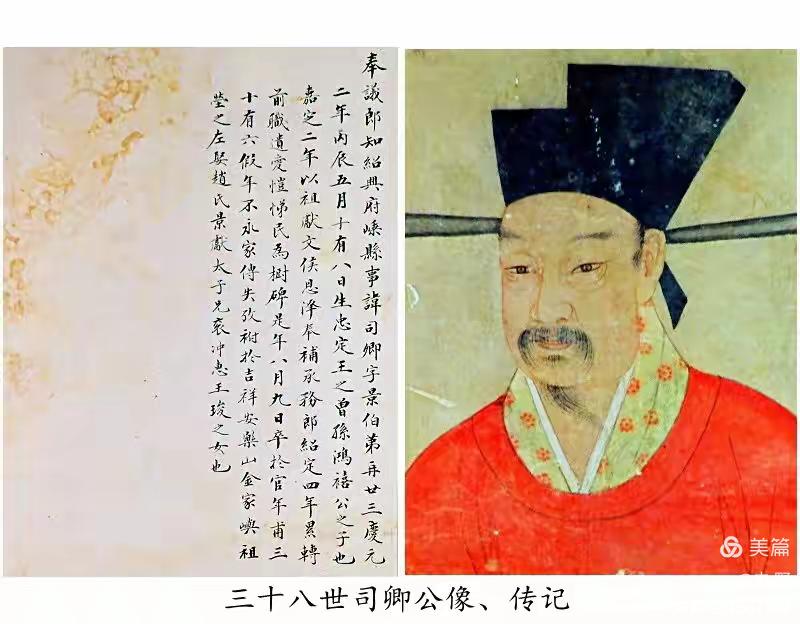 奉議郎知紹興府嵊縣事諱司卿字景伯第再廿三慶元
二年丙辰五月十有八日生忠定王之曾孫鴻禧公之子也
嘉定二年以祖獻文侯恩澤奉補承務郎紹定四年累轉
前職遺愛愷悌民為樹碑是年八月九日卒於官年甫三
十有六假年不永家傳失攷祔於吉祥安樂山金家嶼祖
塋之左娶趙氏景獻太子兄衮冲惠王璇之女也
美篇
三十八世司卿公像、传记